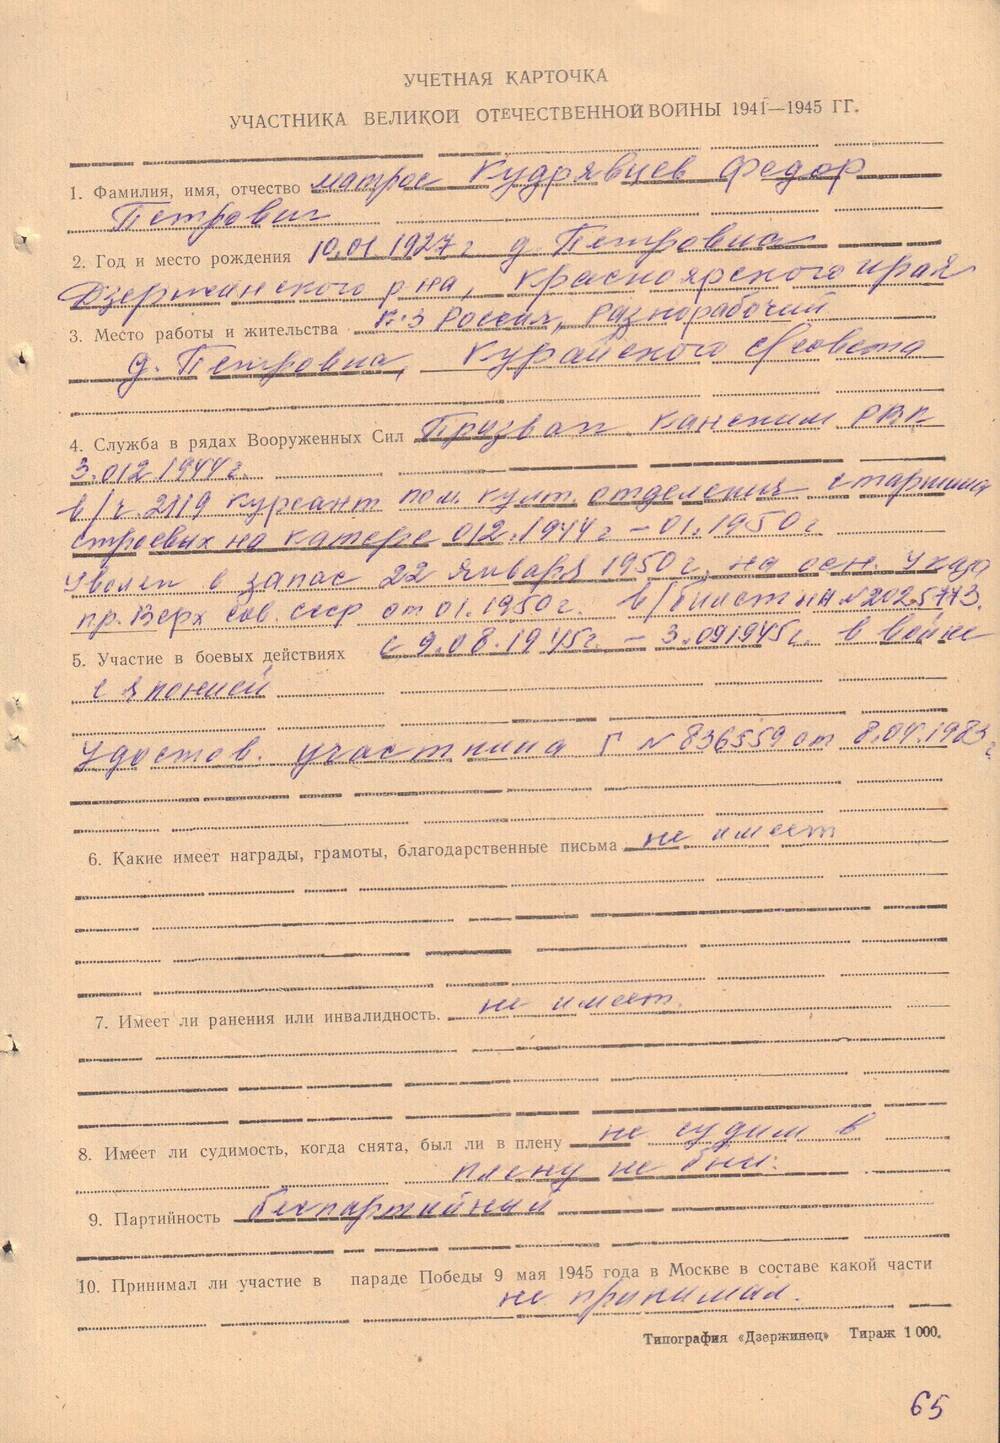 УЧЕТНАЯ КАРТОЧКА
УЧАСТНИКА ВЕЛИКОЙ ОТЕЧЕСТВЕННОЙ ВОЙНЫ 1941—1945 ГГ.
1. Фамилия, имя, отчество матрос Кудрявцев Федор
Петрович
2. Год и место рождения 10.01.1927 г д. Петровка
Дзержинского р на, Красноярского края
3. Место работы и жительства к-з Россия, Разнорабочий
д. Петровка, Курайского с/совета
4. Служба в рядах Вооруженных Сил Призван Канским РВК
3.012 1944 г.
в/ч. 2119 курсант пом. культ. отделения старшина
строевых на катере 012.1944 г – 01.1950 г
Уволен в запас 22 Января 1950 г. на осн. Указа
пр. Верх Сов. СССР от 01.1950 г. в/билет НА № 2025773.
5. Участие в боевых действиях с 9.08.1945 г. – 3.091945 г. в войне
с Японией
Удостов. участника Г № 836559 от 8.04.1983 г
6. Какие имеет награды, грамоты, благодарственные письма не имеет
7. Имеет ли ранения или инвалидность. не имеет.
8. Имеет ли судимость, когда снята, был ли в плену не судим в
плену не был.
9. Партийность беспартийный
10. Принимал ли участие в параде Победы 9 мая 1945 года в Москве в составе какой части
не принимал.
Типография «Дзержинец» Тираж 1 000.
65